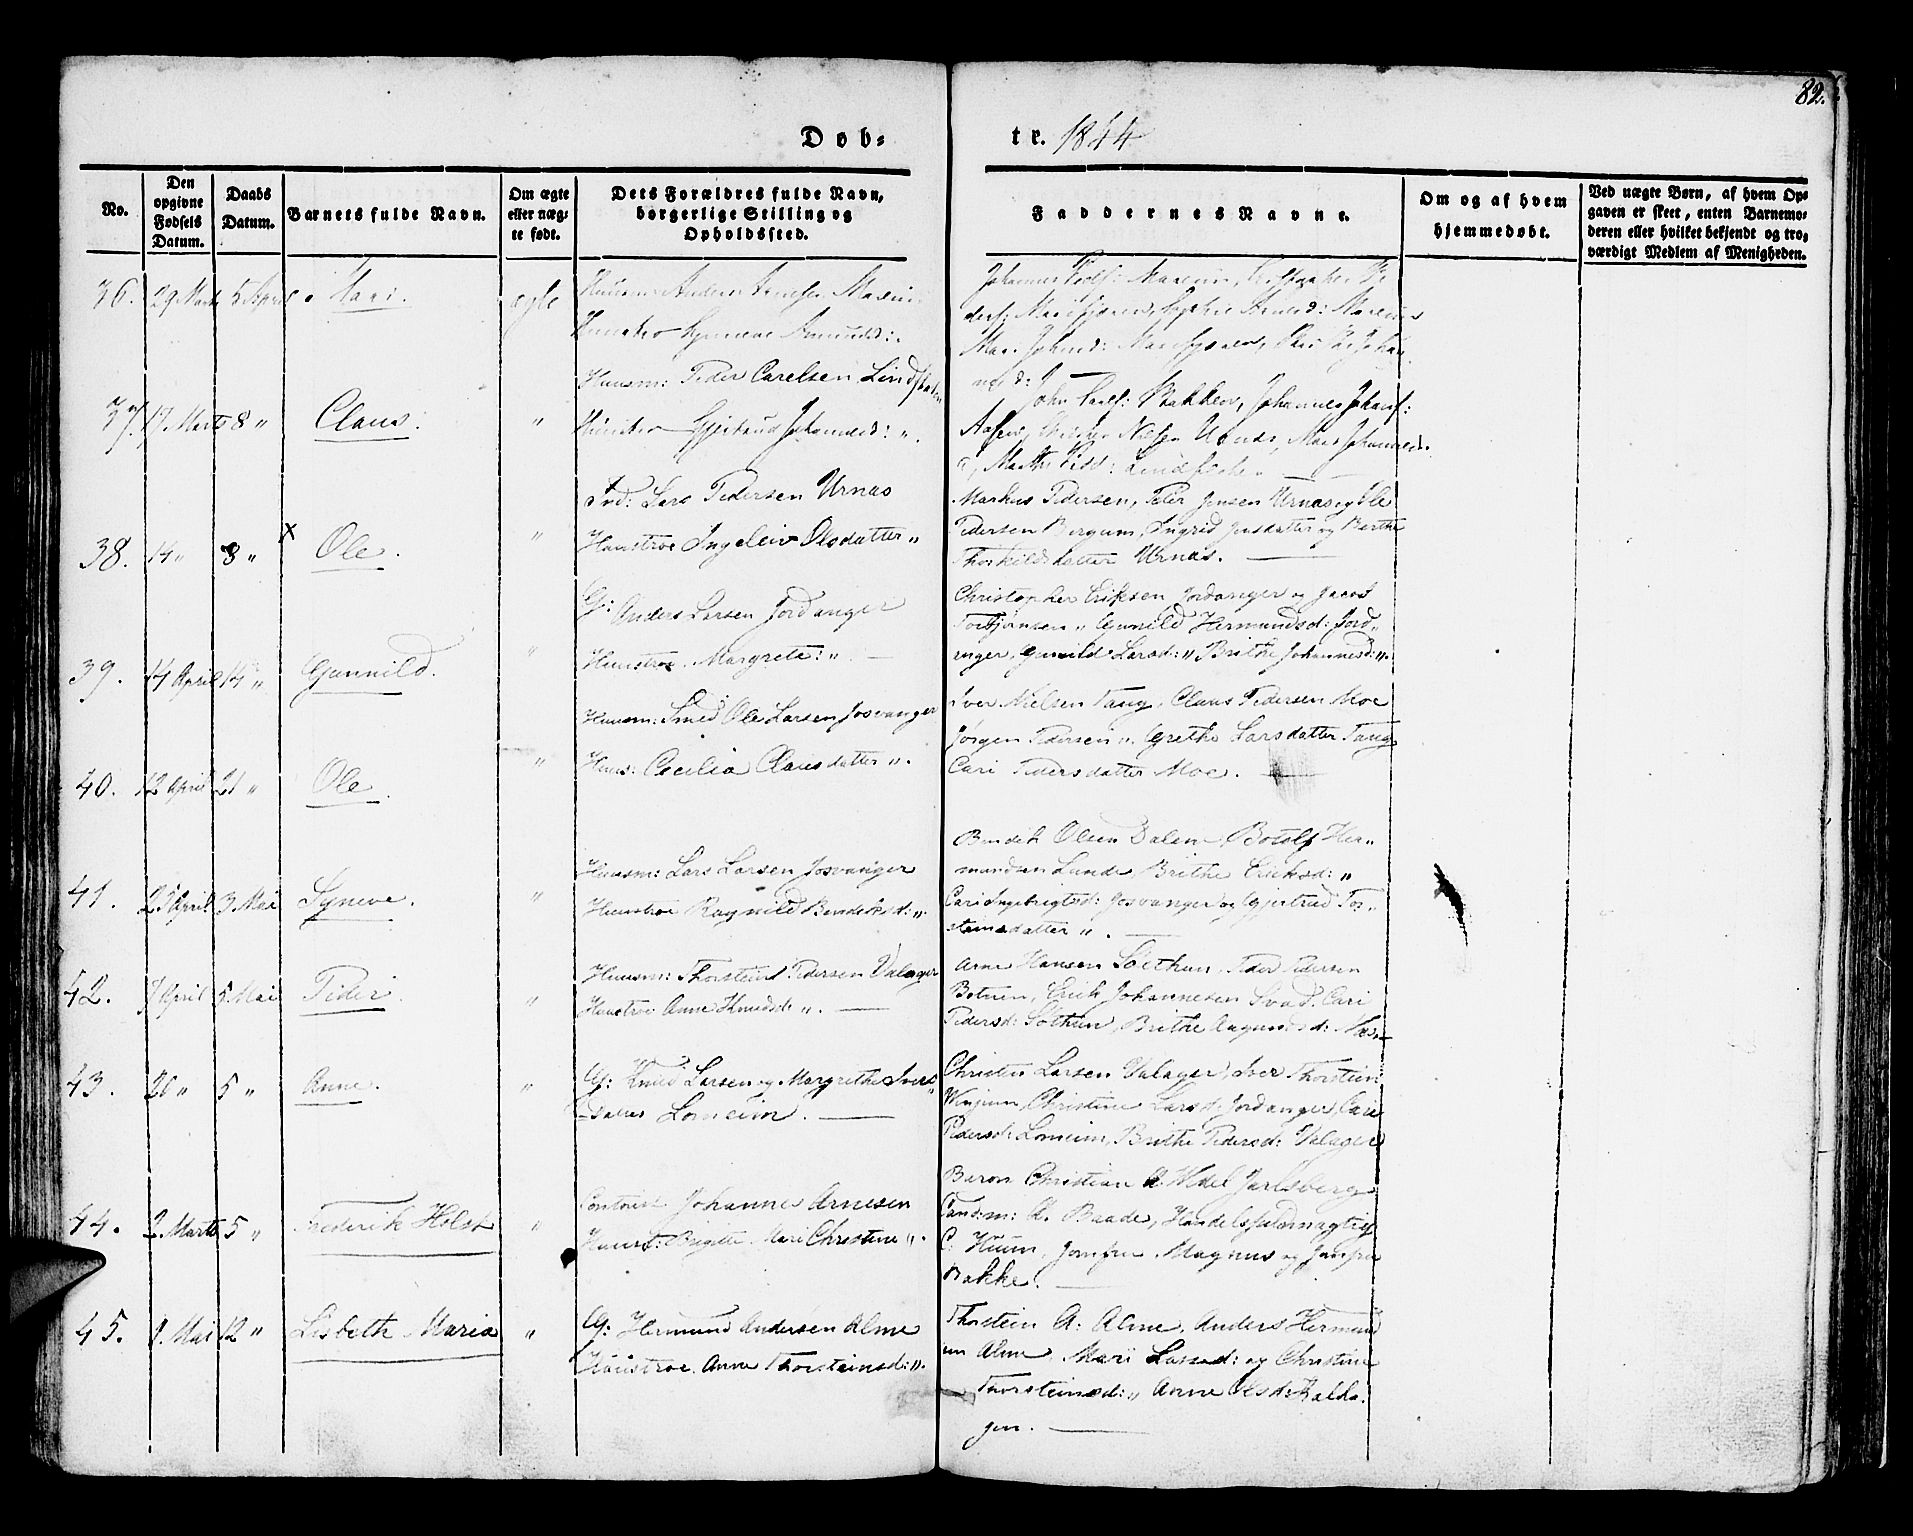 82.
Døb- tr. 1844
No.
Den opgivne Fødsels Datum.
Daabs Datum.
Barnets fulde Navn.
Om ægte eller uægte født.
Dets Forældres fulde Navn, borgerlige Stilling og Opholdssted.
Faddernes Navne.
Om og af hvem hjemmedøbt.
Ved uægte Børn, af hvem Opgaven er skeet, enten Barnemoderen eller hvilket bekjendt og troværdigt Medlem af Menigheden.
36. 29 Marts 5 April Mari. ægte
Anders
Johannes
37. 17 Marts 8 " Claus. "
Huusm: Peder Carelsen Lind
Gjertrud Johannesd: ".
Bakken, Johannes Johans:
Nielsen Urnæs, Mari Johannesd.
38. 14 " 8 " x Ole. "
Ind: Lars Pedersen Urnæs
Hanstroe Ingeleiv Olsdatter "
Markus Pedersen, Peder Jensen Urnæs og Ole
Pedersen Bergum, Ingrid Jensdatter og Berthe
Thorkildsdatter Urnæs.
39. 14 April 14 " Gunnild. "
G: Anders Larsen Jordanger
Huustroe Margrete: ".
Christopher Eriksen Jordanger og Jacob
Torbjørnsen " Gunild Hermundsd: Jord-
anger, Gunild Larsd: " Brithe Johannesd: ".
40. 12 April 21 " Ole. "
Huusm: Smed Ole Larsen Josvanger
Huus: Cecilia Clausdatter ".
Iver Nielsen Tang, Claus Pedersen Moe
Jørgen Pedersen ". Grethe Larsdatter Tang
Cari Pedersdatter Moe.
41. 25 April 3 Mai Syneve. "
Huusm: Lars Larsen Josvanger
Huustroe Ragnild Bendeksd: ".
Bendek Olsen Dalen, Botolf Her-
mundsen Lunde, Brithe Eriksd: "
Cari Ingebrigtsd: Josvanger og Gjertrud Tor-
steinsdatter ".
42. 7 April 5 Mai Peder. "
Huusm: Thorstein Pedersen Valager
Huustroe Anne Knudsd: ".
Arne Hansen Sølthun, Peder Pedersen
Erik Johannesen Svad. Cari
Pedersd: Sølthun, Brithe Aagmundsd:
43. 26 " 5 " Anne. "
G: Knud Larsen og Margrethe Ivers-
datter Lomeim.
Christen Larsen Valager, Iver Thorstein
Christine Larsd: Jordanger, Cari
Pedersd: Lomeim, Brithe Pedersd: Valager
44. 2 Marts 5 " Frederik Holst "
Johannes Arnesen
Huust: Birgitte Mari Christine ".
Baron Christian A. Wedel Jarlsberg
Baade, Handelsfuldmægtig
C. Huun, Jomfru Magnus og Jomfru
Bakke.
45. 9. Mai 12 " Lisbeth Maria "
G: Hermund Andersen Alme
Huustroe. Anne Thorsteinsd: ".
Thorstein A: Alme, Anders Hermund
sen Alme, Mari Lassed: og Christine
Thorsteinsd: " Anne Olsd:
gen.